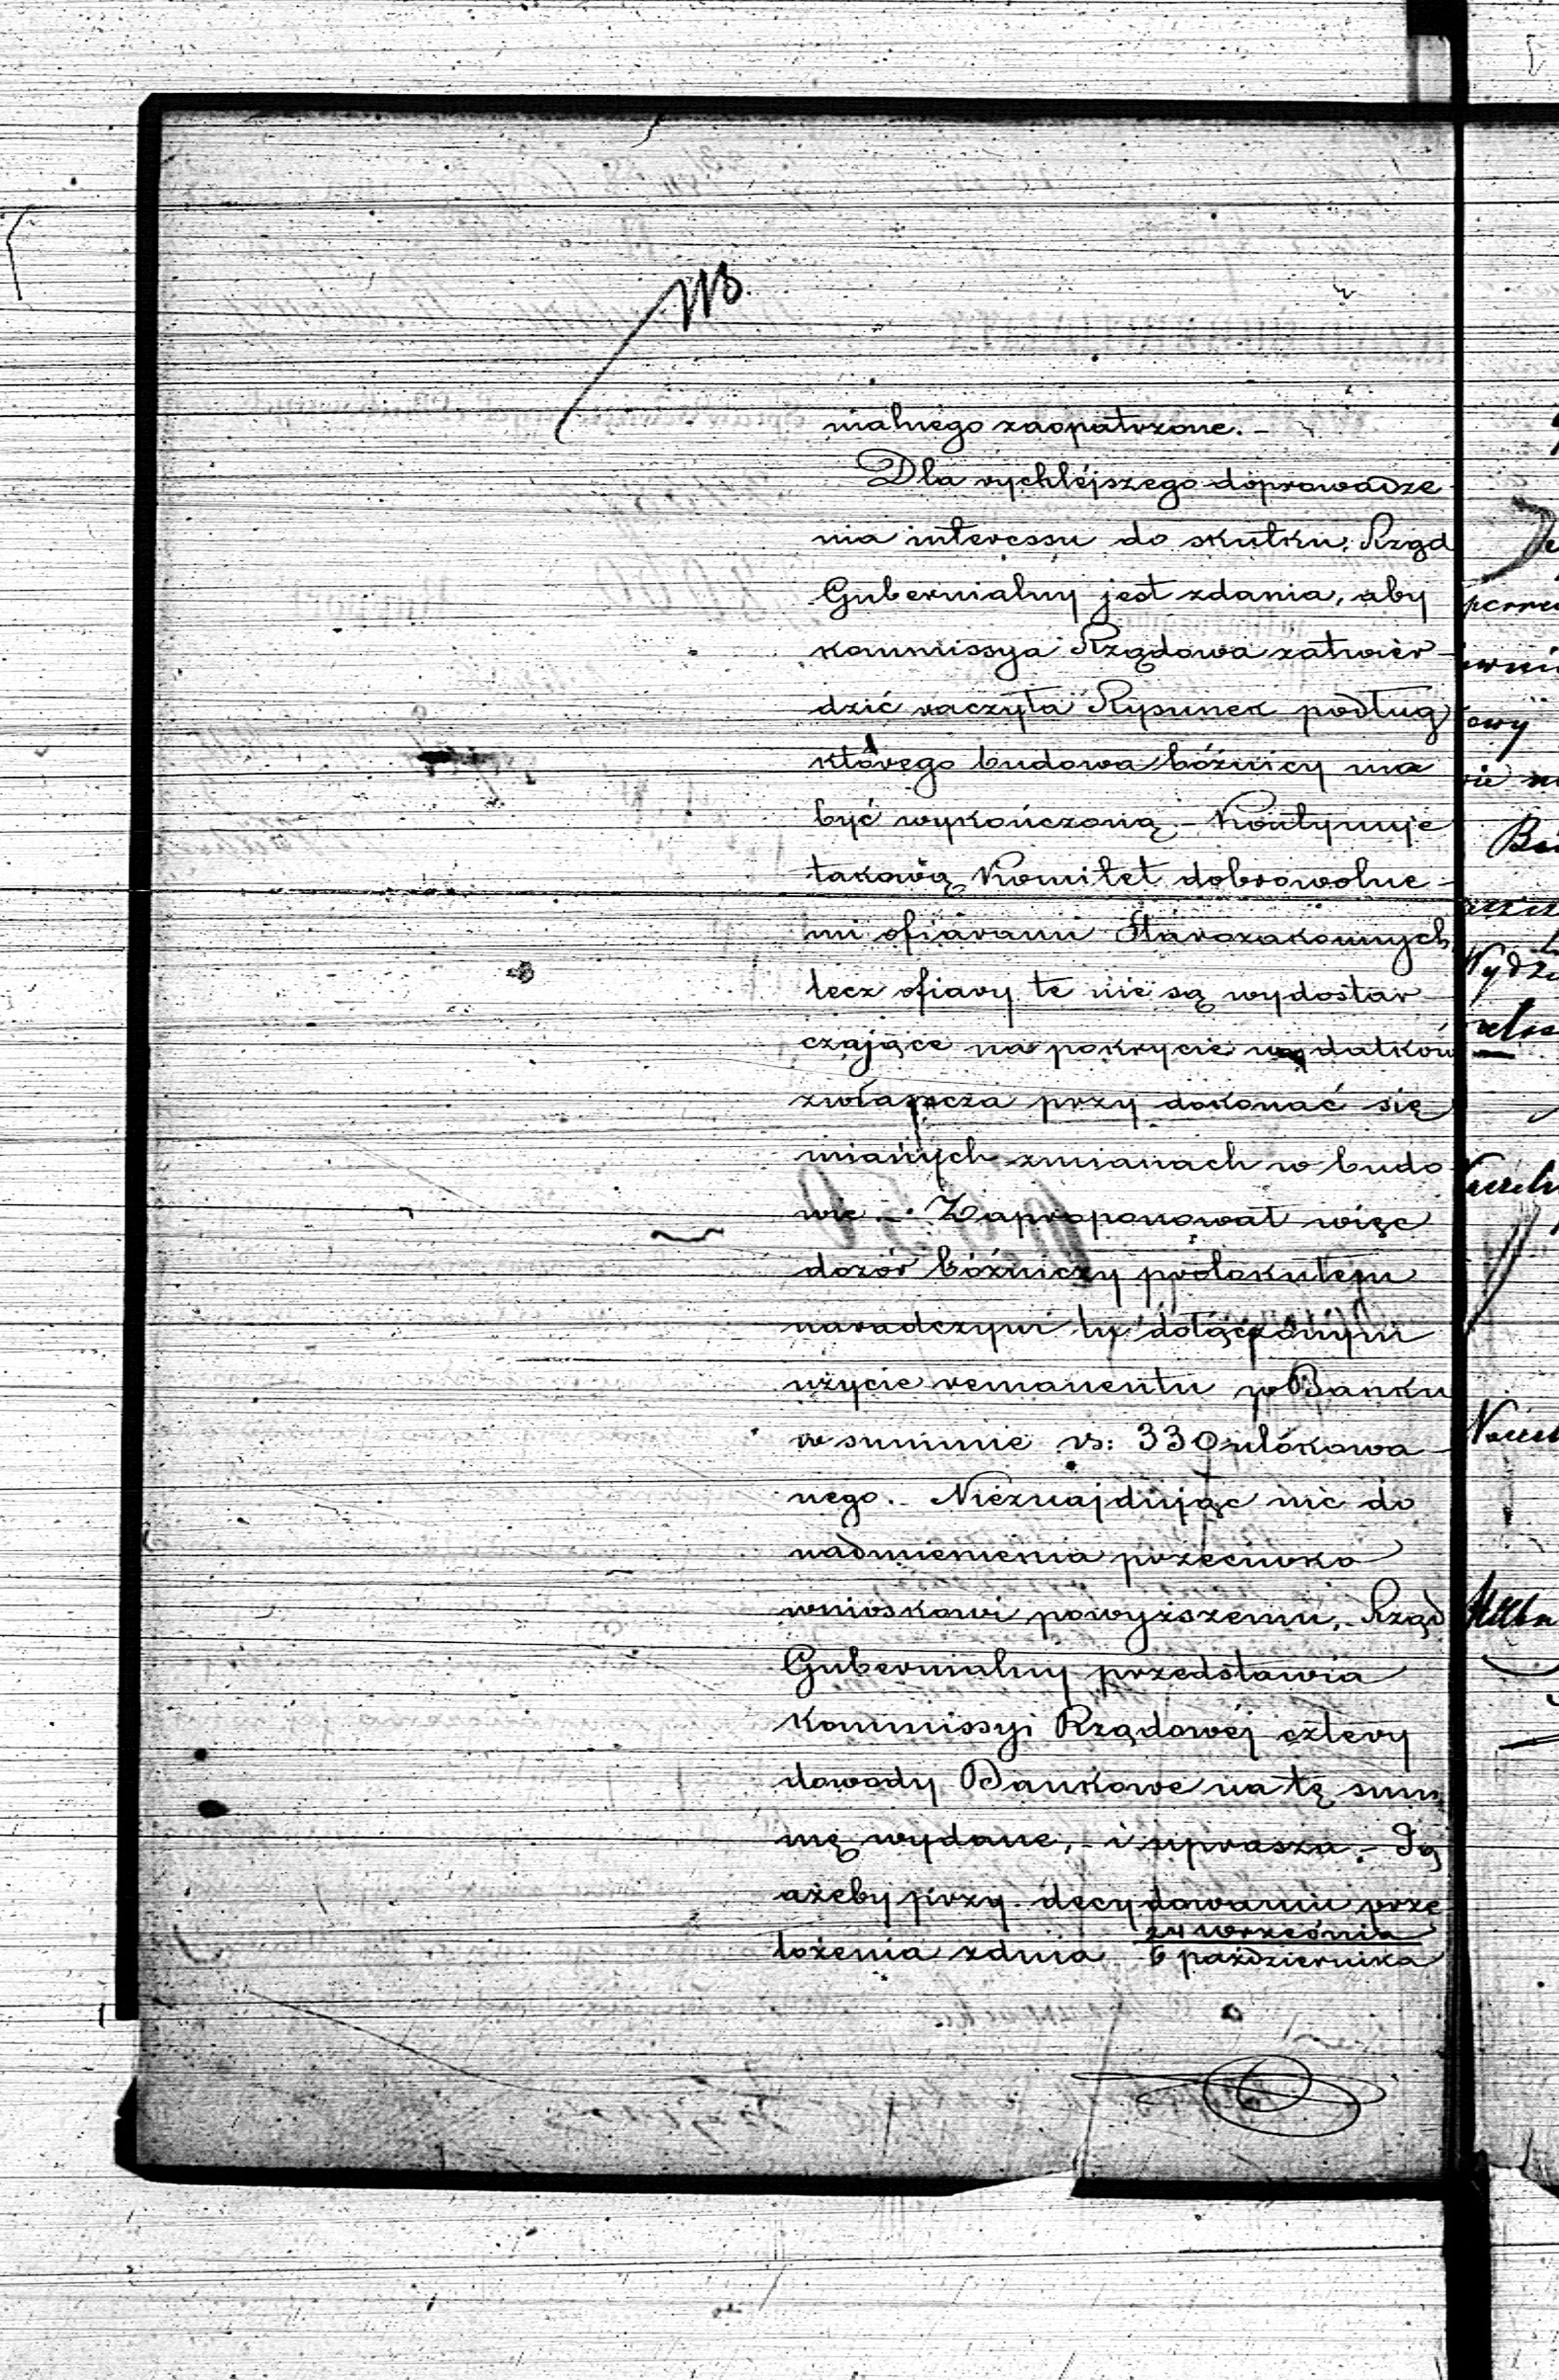 nialnego zaopatrzone. -
Dla rychlejszego doprowadze
nia interessu do skutku, Rząd
Gubernialny jest zdania, aby
kommissya Rządowa zatwier-
dzić raczyła Rysunek podług
którego budowa bóżnicy ma
być wykończoną. - Kontynuje
takową Komitet dobrowolne-
mi ofiarami Starozakonnych
lecz ofiary te nie są wydostar-
czające na pokrycie wydatków
zwłaszcza przy dokonać się
mianych zmianach w budo
wie. - Zaproponował więc
dozór bóżniczy protokułem
naradczym tu dołączonym
użycie remanentu w Banku
w summie rs: 330 ulokowa-
nego. - Nieznajdując nic do
nadmienienia przeciwko
wnioskowi powyższemu, Rząd
Gubernialny przedstawia
Kommissyi Rządowéj cztery
dowody Bankowe na tę sum
mę wydane, - i uprasza. - Ją
ażeby przy decydowaniu prze
łożenia z dnia 24 września
6 października